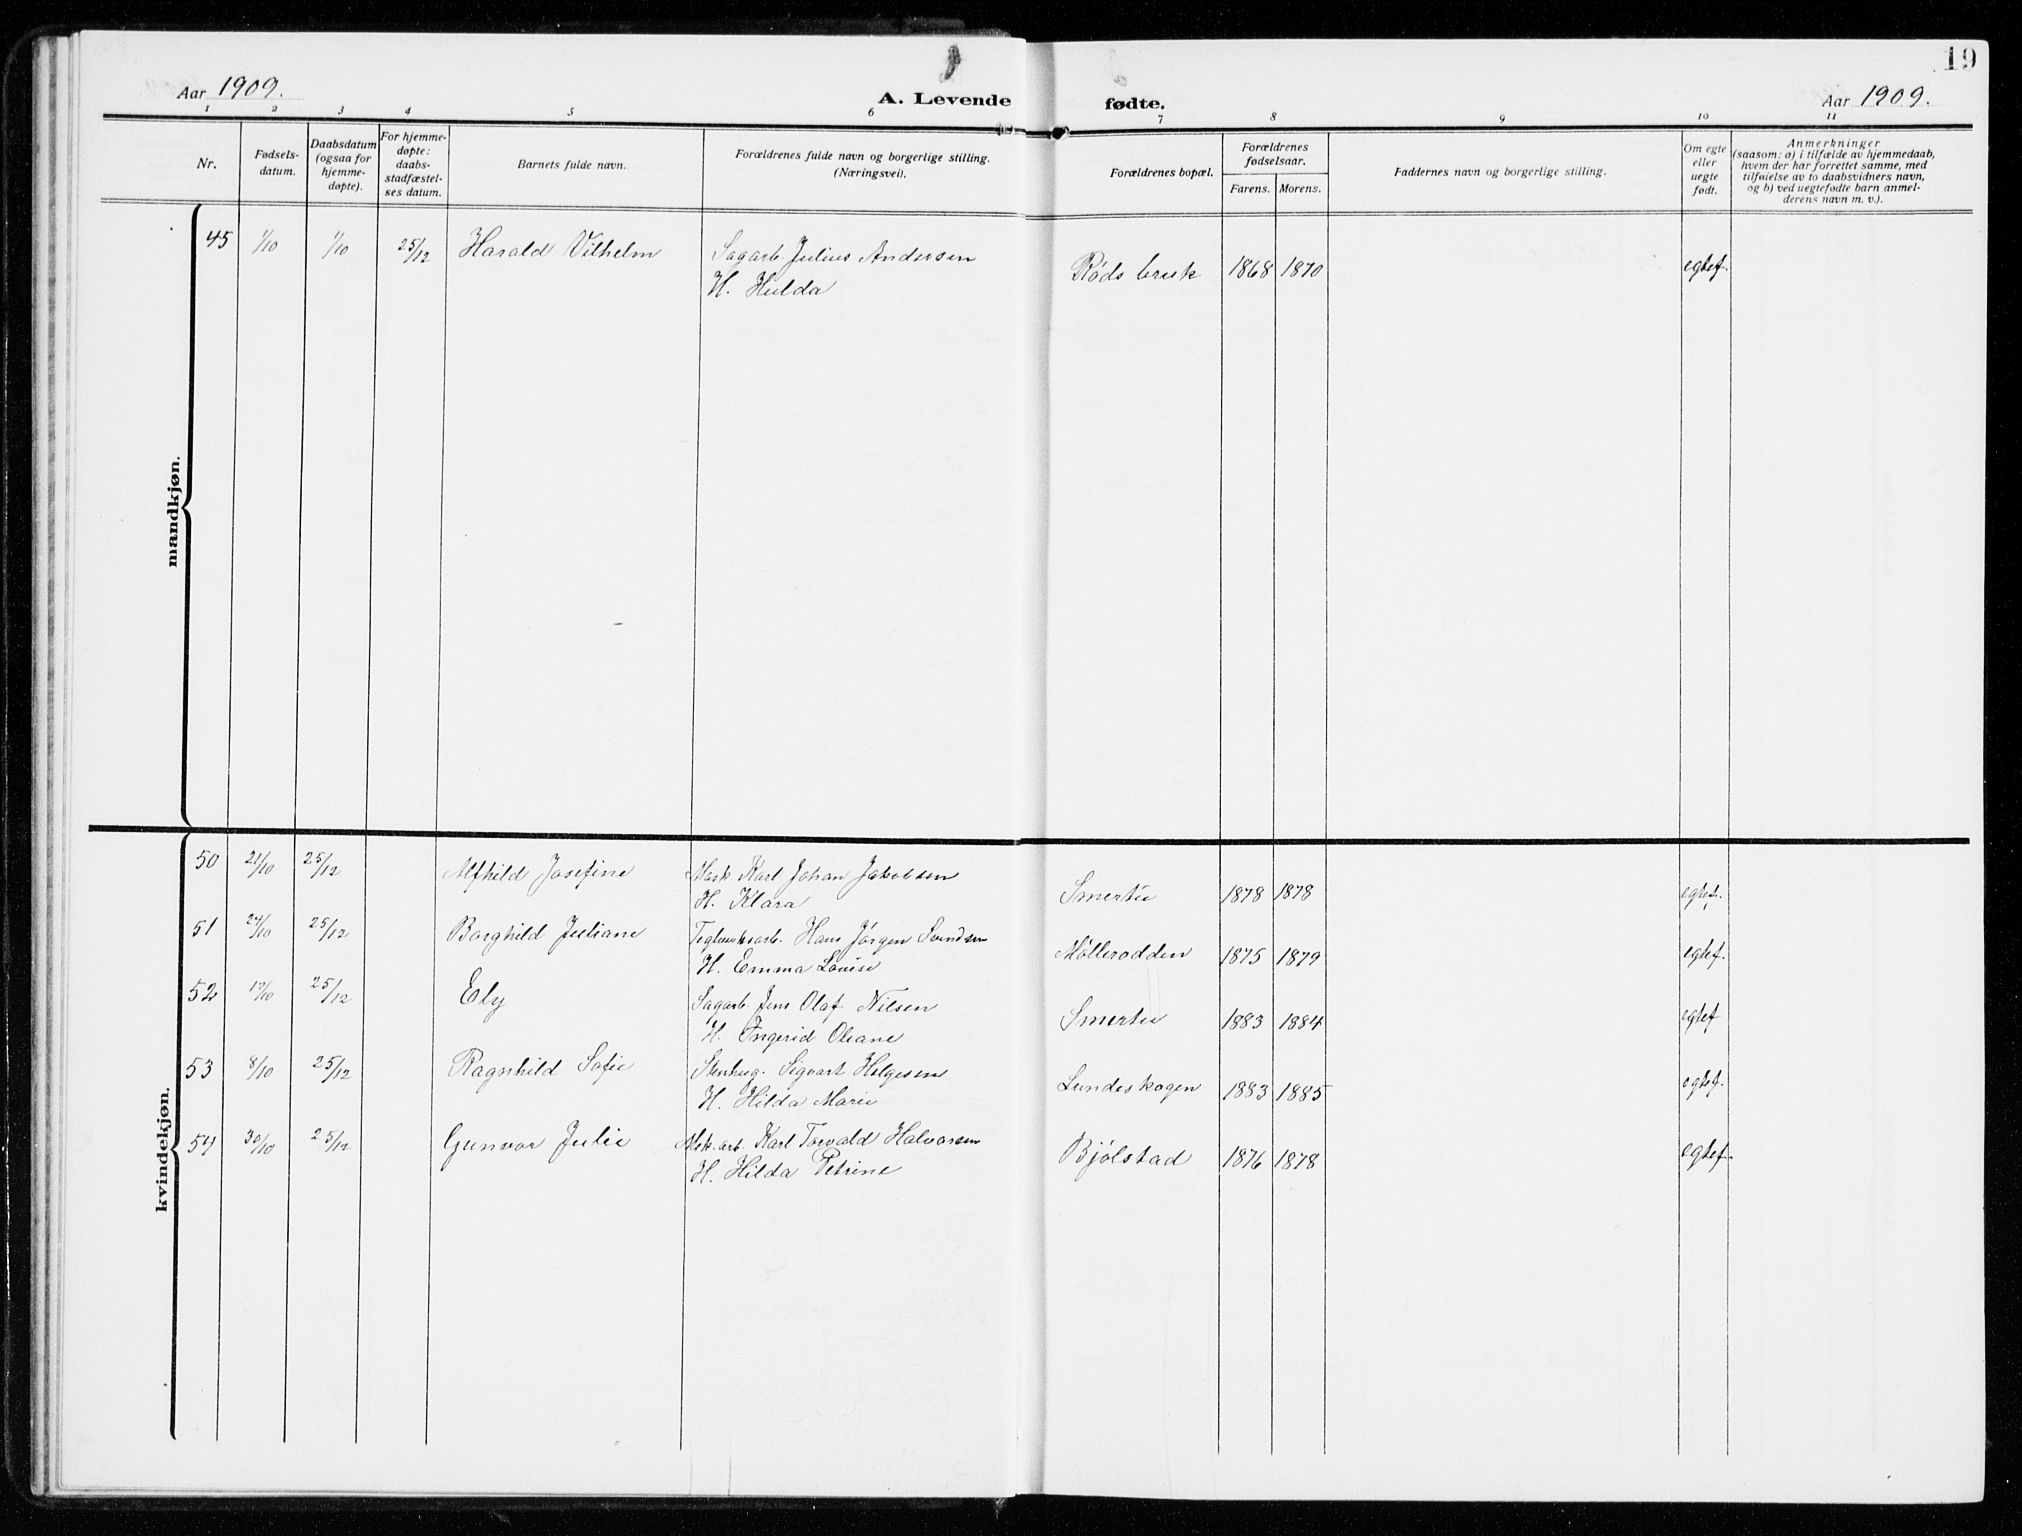 19
Aar 1909. A. Levende fødte. Aar 1909.
1 2 3 4 5 6 7 8 9 10 11
Nr.
Fødsels-
datum.
Daabsdatum
(ogsaa for
hjemme-
døpte).
For hjemme-
døpte:
daabs-
stadfæstel-
ses datum.
Barnets fulde navn.
Forældrenes fulde navn og borgerlige stilling.
(Næringsvei).
Forældrenes bopæl.
Forældrenes
fødselsaar.
Farens. Morens.
Faddernes navn og borgerlige stilling.
Om egte
eller
uegte
født.
Anmerkninger
(saasom: a) i tilfælde av hjemmedaab,
hvem der har forrettet samme, med
tilføielse av to daabsvidners navn,
og b) ved uegtefødte barn anmel-
derens navn m. v.).
mandkjøn.
45 1/10 1/10 25/12 Harald Vilhelm Sagarb. Julius Andersen Røds bruk 1868 1870 egtef.
H. Hulda
kvindekjøn.
50 21/10 25/12 Alfhild Josefine Mask Karl Johan Jakobsen Smertu 1878 1878 egtef.
H. Klara
51 24/10 25/12 Borghild Juliane Teglverksarb. Hans Jørgen Svendsen Møllerodden 1875 1879 egtef.
H. Emma Lovise
52 /10 25/12 Ely Sagarb Jens Olaf Nilsen Smertu 1883 1884 egtef
H. Ingerid Oleane
53 8/10 25/12 Ragnhild Sofie Stenhug. Sigvart Helgesen Lundeskogen 1883 1885 egtef.
H. Hilda Marie
54 30/10 25/12 Gunvor Julie Mek.arb. Karl Torvald Halvorsen Bjølstad 1876 1878 egtef.
H. Hilda Petrine